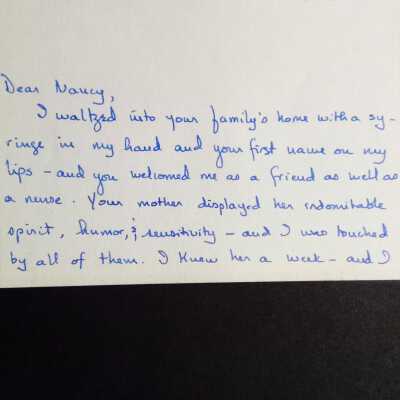 Dear Nancy,
I waltzed into your family's home with a sy-
ringe in my hand and your first name on my
lips - and you welcomed me as a friend as well as
a nurse. Your mother displayed her indomitable
spirit, humor, & sensitivity - and I was touched
by all of them. I knew her a week - and I